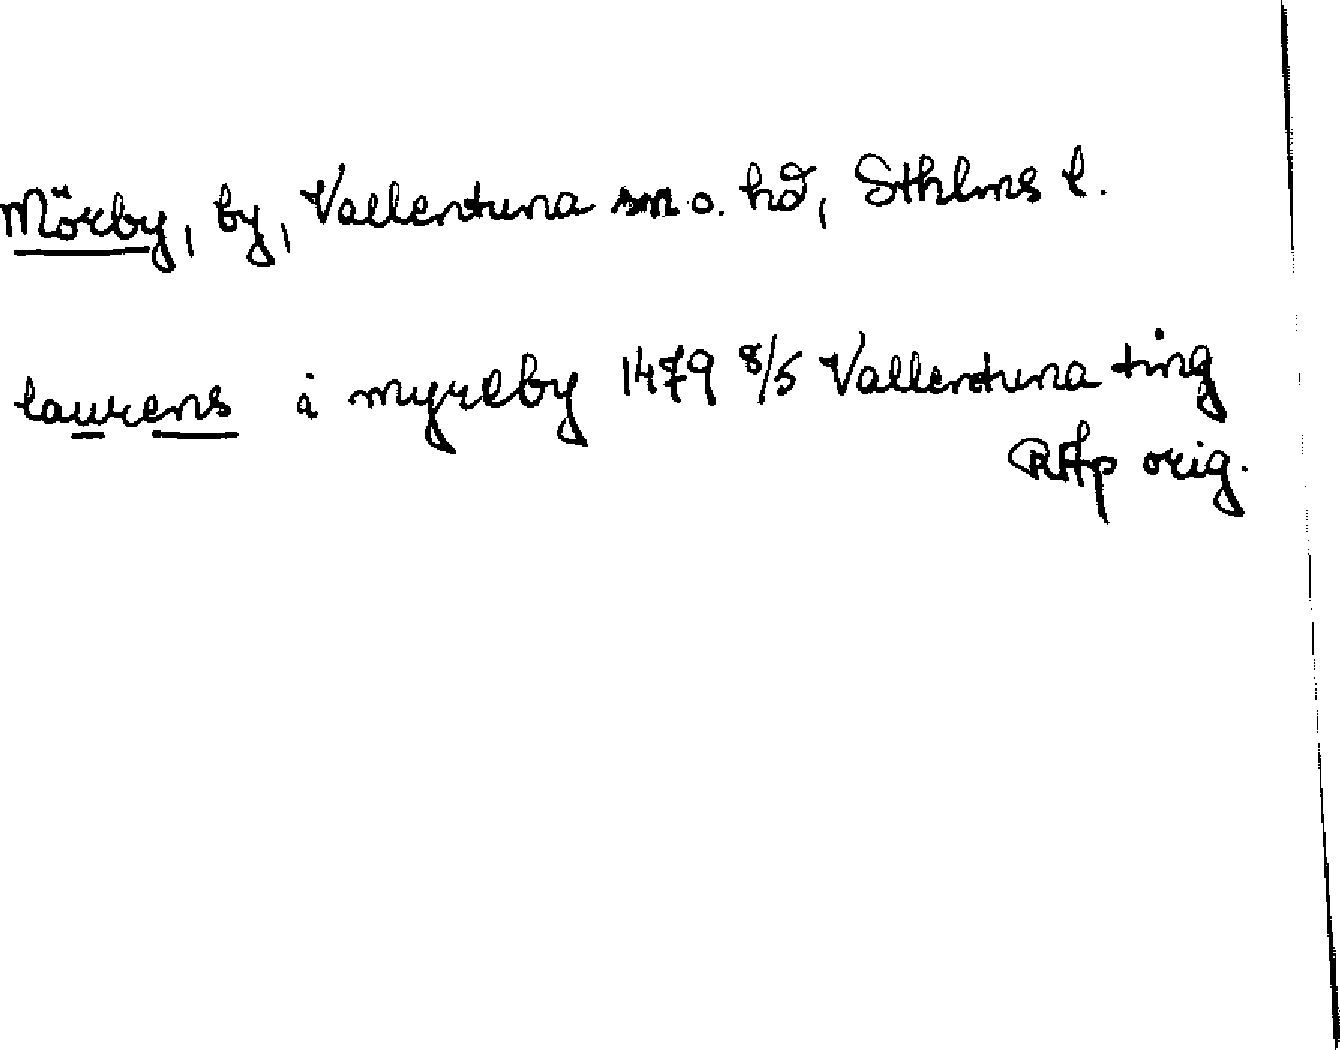 Mörby, by, Vallentuna sn o. hd, Sthlms l.
laurens i myreby 1479 8/5 Vallentuna ting
RAp orig.